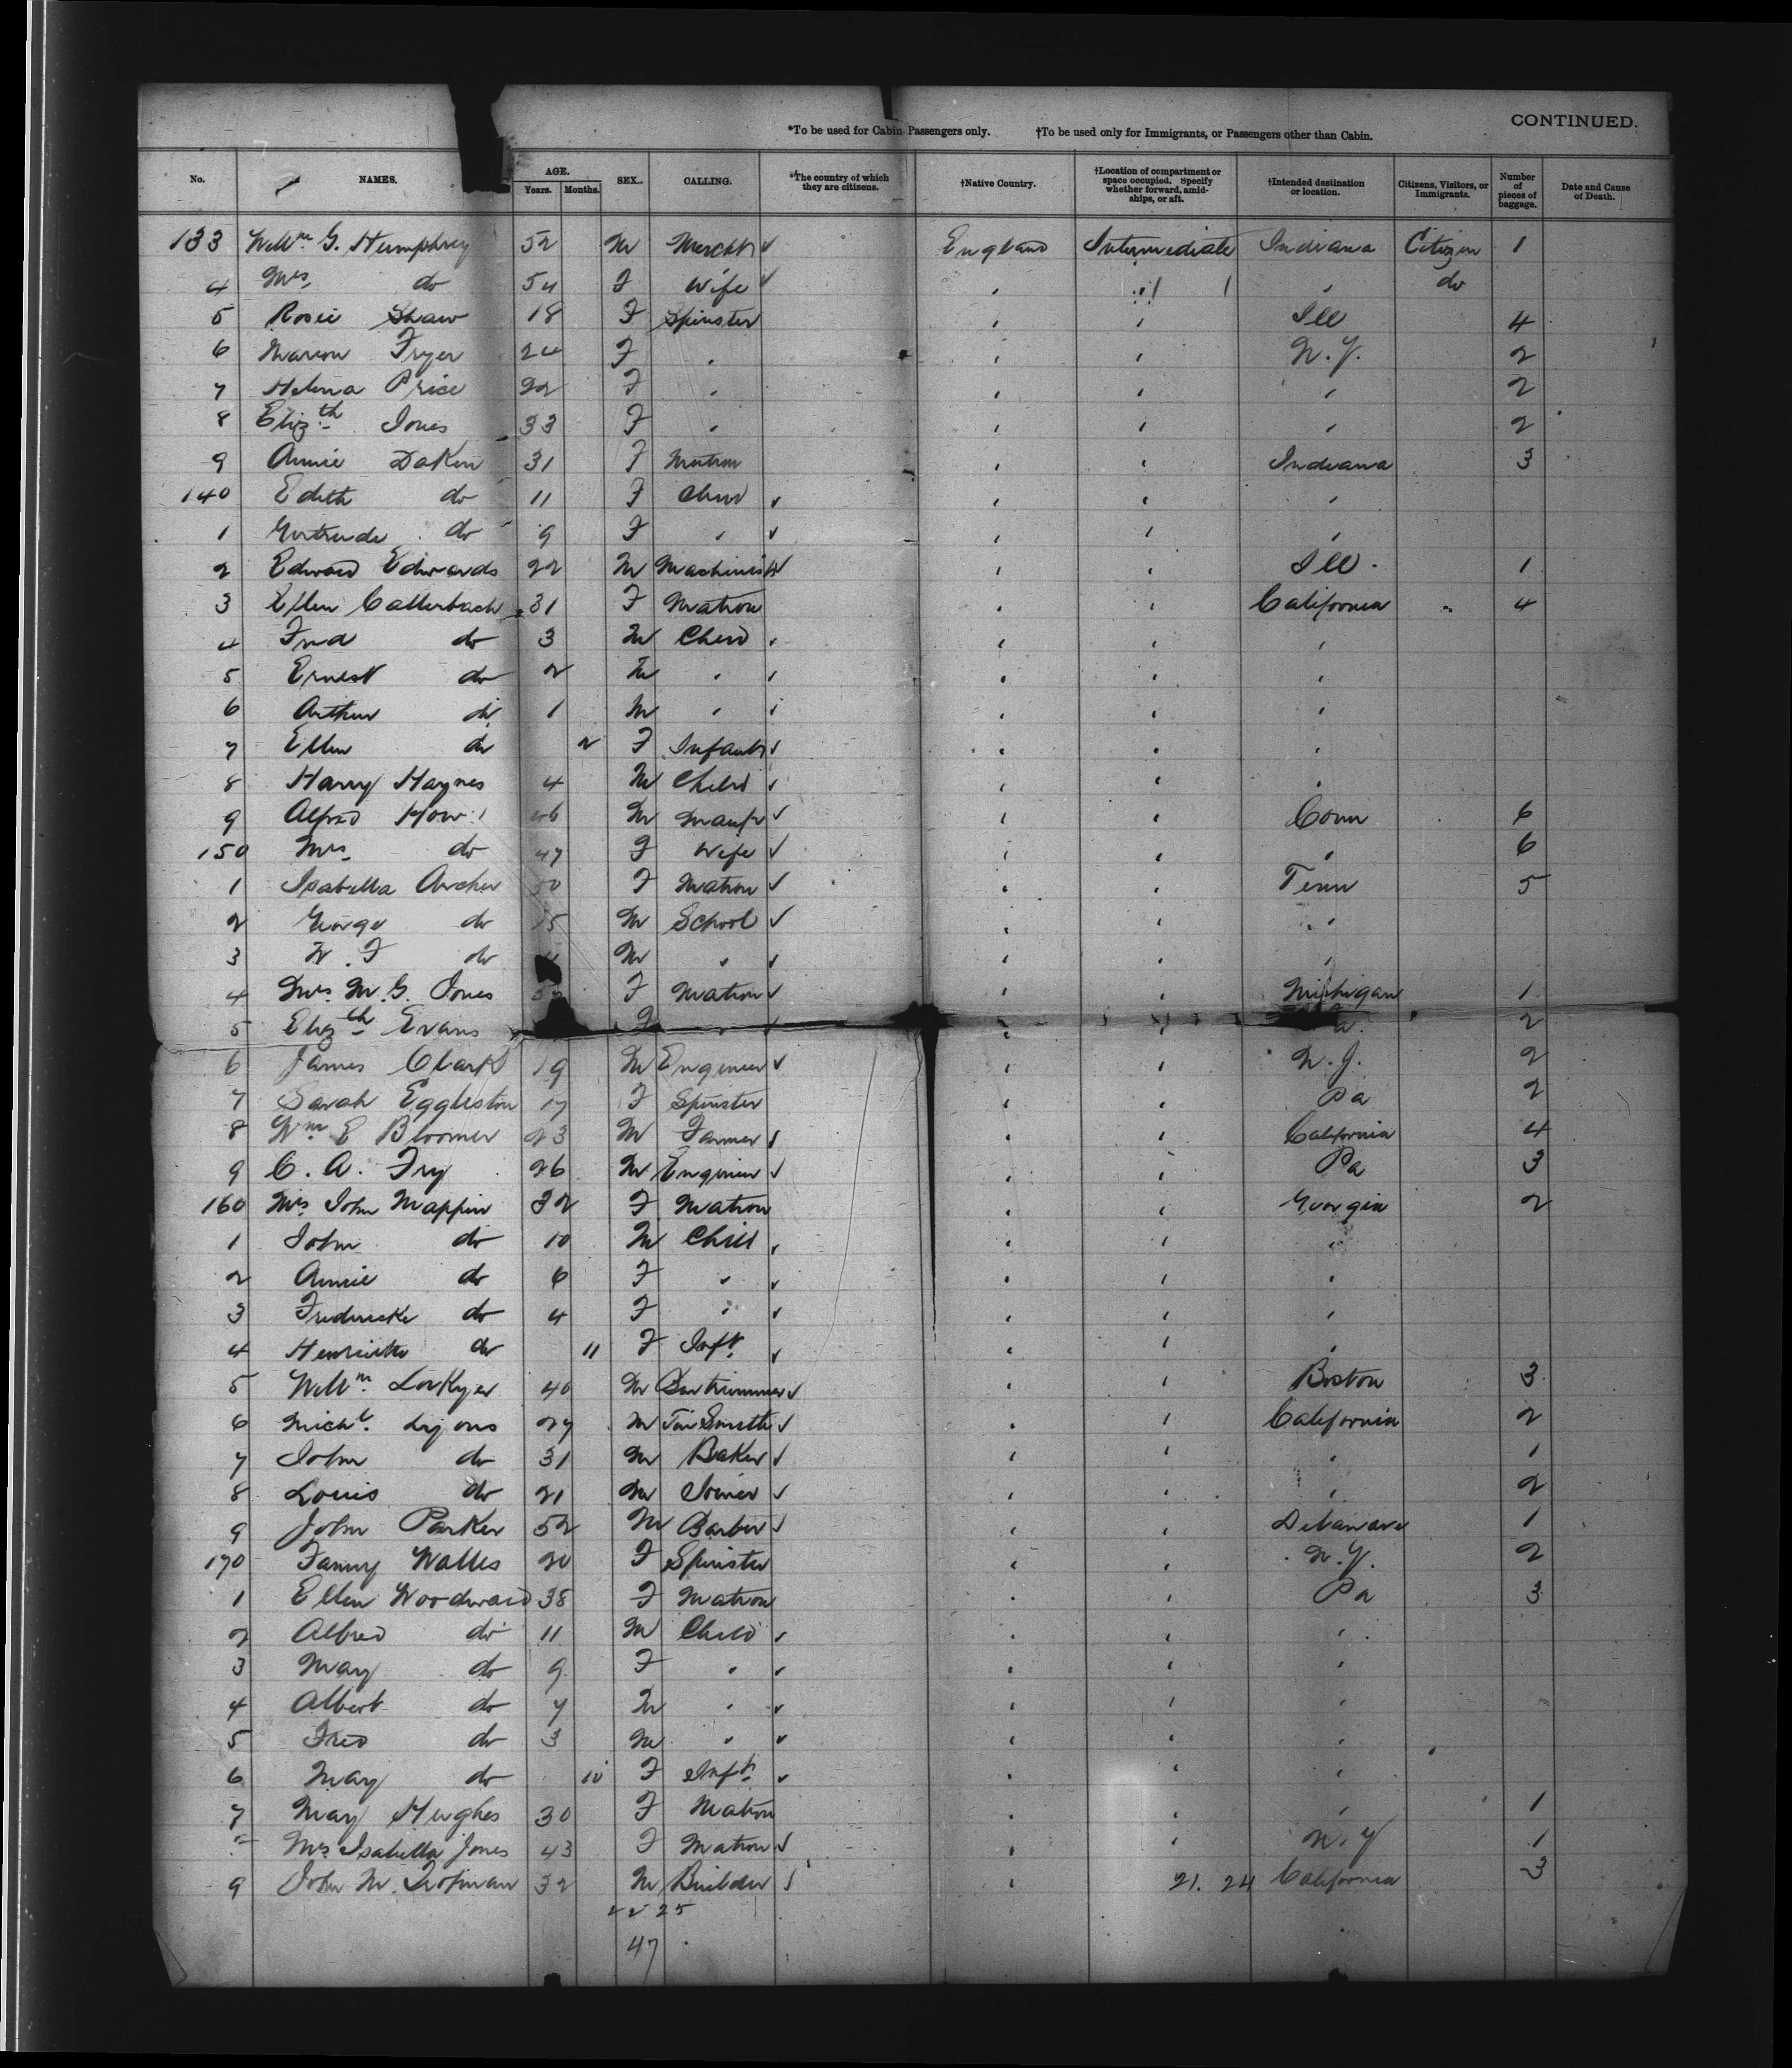 CONTINUED.
*To be used for Cabin Passengers only. †To be used only for Immigrants, or Passengers other than Cabin.
No. NAMES. AGE. Years. Months. SEX. CALLING. *The country of which they are citizens. †Native Country. †Location of compartment or space occupied. Specify whether forward, amidships, or aft. †Intended destination or location. Citizens, Visitors, or Immigrants. Number of pieces of baggage. Date and Cause of Death.
133 Willm G. Humphrey 52 M Mercht ✓ England Intermediate Indiana Citizen 1
4 Mrs. do 54 F Wife ✓ " " " do
5 Rosie Shaw 18 F Spinster " " Ill 4
6 Marion Fryer 24 F " " " N.Y. 2
7 Helena Price 22 F " " " " 2
8 Elizth Jones 33 F " " " " 2
9 Annie Dakin 31 F Matron " " Indiana 3
140 Edith do 11 F Child ✓ " " "
1 Gertrude do 9 F " ✓ " " "
2 Edward Edwards 22 M Machinist ✓ " " Ill. 1
3 Ellen 31 F Matron " " California " 4
4 Fred do 3 M Child ✓ " " "
5 Ernest do 2 M " ✓ " " "
6 Arthur do 1 M " ✓ " " "
7 Ellen do 2 F Infant ✓ " " "
8 Harry Haynes 4 M Child ✓ " " "
9 Alfred How 46 M Manfr ✓ " " Conn 6
150 Mrs. do 47 F Wife ✓ " " " 6
1 Isabella Archer 50 F Matron ✓ " " Tenn 5
2 George do 15 M School ✓ " " "
3 W. F do M " ✓ " " "
4 Mrs. M. G. Jones F Matron ✓ " " Michigan 1
5 Elizth Evans F " ✓ " " 2
6 James Clark 19 M Engineer ✓ " " N.J. 2
7 Sarah Eggleston 17 F Spinster " " Pa 2
8 Wm E Bloomer 23 M Farmer ✓ " " California 4
9 C. A. Fry 26 M Engineer ✓ " " Pa 3
160 Mrs John Mappin 32 F Matron " " Georgia 2
1 John do 10 M Child ✓ " " "
2 Annie do 6 F " ✓ " " "
3 Fredericke do 4 F " ✓ " " "
4 Henrietta do 11 F Inft. ✓ " " "
5 Willm. Lockyer 40 M ✓ " " Boston 3
6 Michl. Lyons 27 M Tin Smith ✓ " " California 2
7 John do 31 M Baker ✓ " " " 1
8 Louis do 21 M Joiner ✓ " " " 2
9 John Parker 52 M Barber ✓ " " Delaware 1
170 Fanny Walles 20 F Spinster " " N.Y. 2
1 Ellen Woodward 38 F Matron " " Pa 3
2 Alfred do 11 M Child ✓ " " "
3 May do 9 F " ✓ " " "
4 Albert do 7 M " ✓ " " "
5 Fred do 3 M " ✓ " " "
6 May do 10 F Inft ✓ " " "
7 May Hughes 30 F Matron " " " 1
Mrs Isabella Jones 43 F Matron ✓ " " N.Y 1
9 John M. 32 M Builder ✓ " 21. 24 California 3
22 25
47